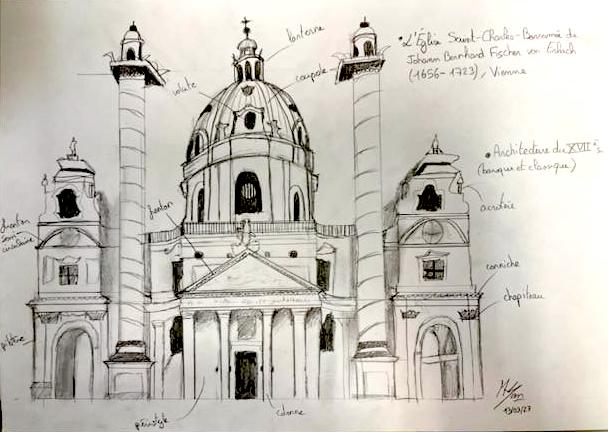 lanterne
coupole
volute
• L'Église Saint-Charles-Borromée de
Johann Bernhard Fischer von Erlach
(1656-1723), Vienne
• Architecture du XVII è s.
(baroque et classique)
fronton
fronton
semi-
circulaire
acrotère
corniche
chapiteau
pilastre
péristyle
colonne
13/03/23